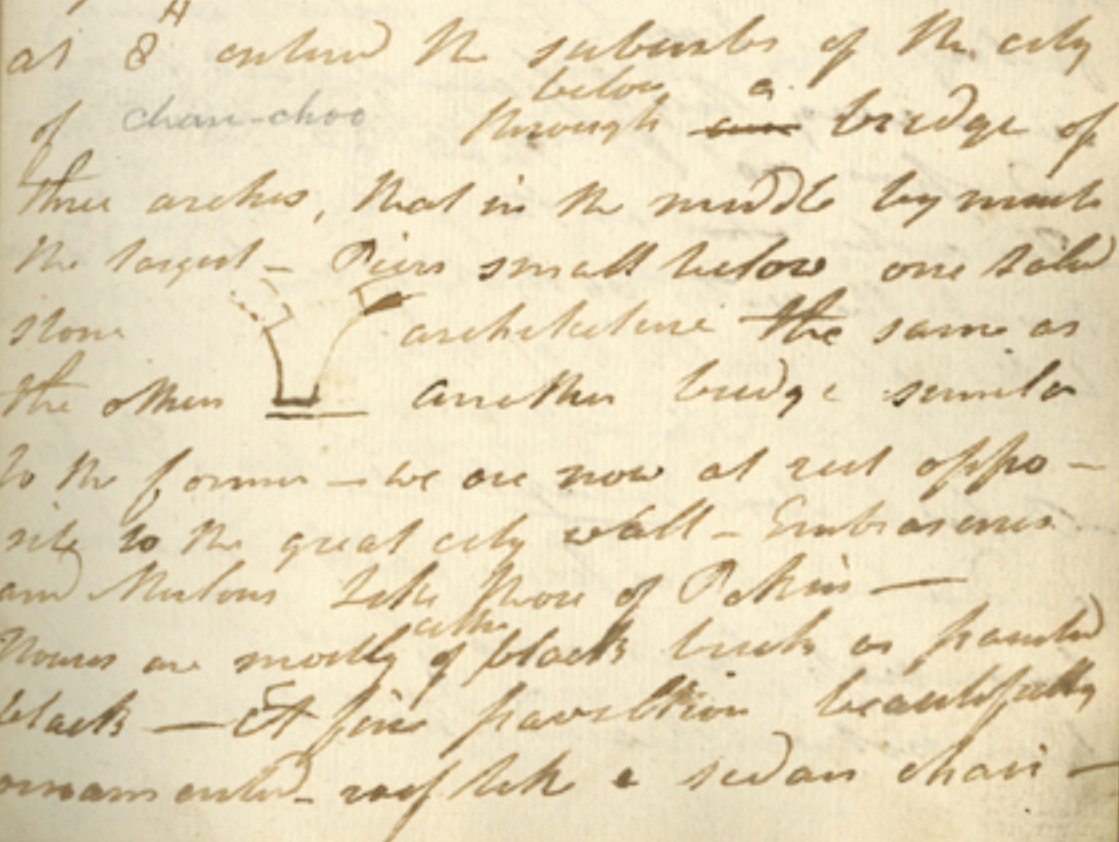 at 8H entered the suburbs of the city
of chan-choo through below a bridge of
three arches, that in the middle by much
the largest - Piers small below one solid
stone architecture the same as
the others another bridge similar
to the former - we are now at rest oppo-
site to the great city wall - Embrasures
and Merlons like those of Pekin -
Houses are mostly either of black brick or painted
black - A fine pavillion beautifully
ornamented - roof like a sedan chair -